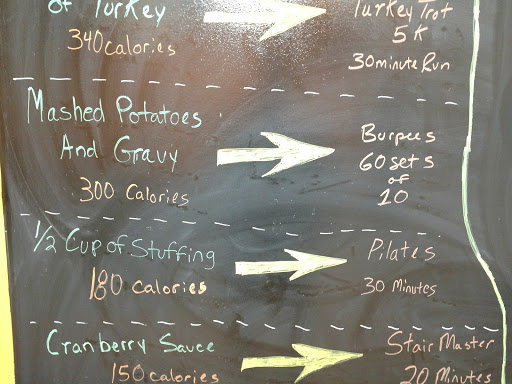 of Turkey
340 calories
Turkey Trot
5K
30 minute Run
Mashed Potatoes
And Gravy
300 Calories
Burpees
60 sets
of
10
1/2 Cup of Stuffing
180 calories
Pilates
30 Minutes
Cranberry Sauce
150 calories
Stair Master
20 Minutes